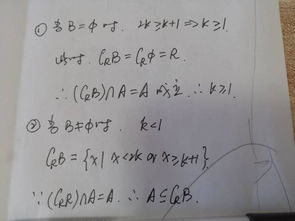 ① 当B=φ时, 2k≥k+1⇒k≥1.
此时. C_RB=C_Rφ=R.
∴(C_RB)∩A=A 成立. ∴k≥1.
② 当B≠φ时, k<1
C_RB={x|x<2k or x≥k+1}
∵(C_RR)∩A=A. ∴A⊆C_RB.